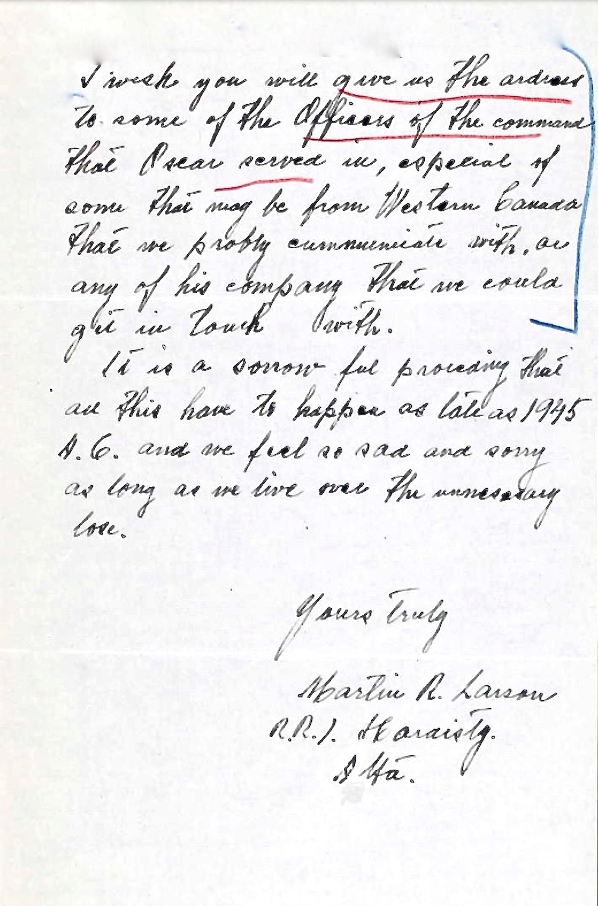 I wish you will give us the ardress
to some of the Officers of the command
that Oscar served in, especial of
some that may be from Western Canada
that we probly cummunicate with, or
any of his company that we could
get in touch with.
It is a sorrow ful proceding that
all this have to happen as late as 1945
A.C. and we feel so sad and sorry
as long as we live over the unnessesary
lose.
Yours truly
Martin R. Larson
R.R.1. Hardisty.
Alta.